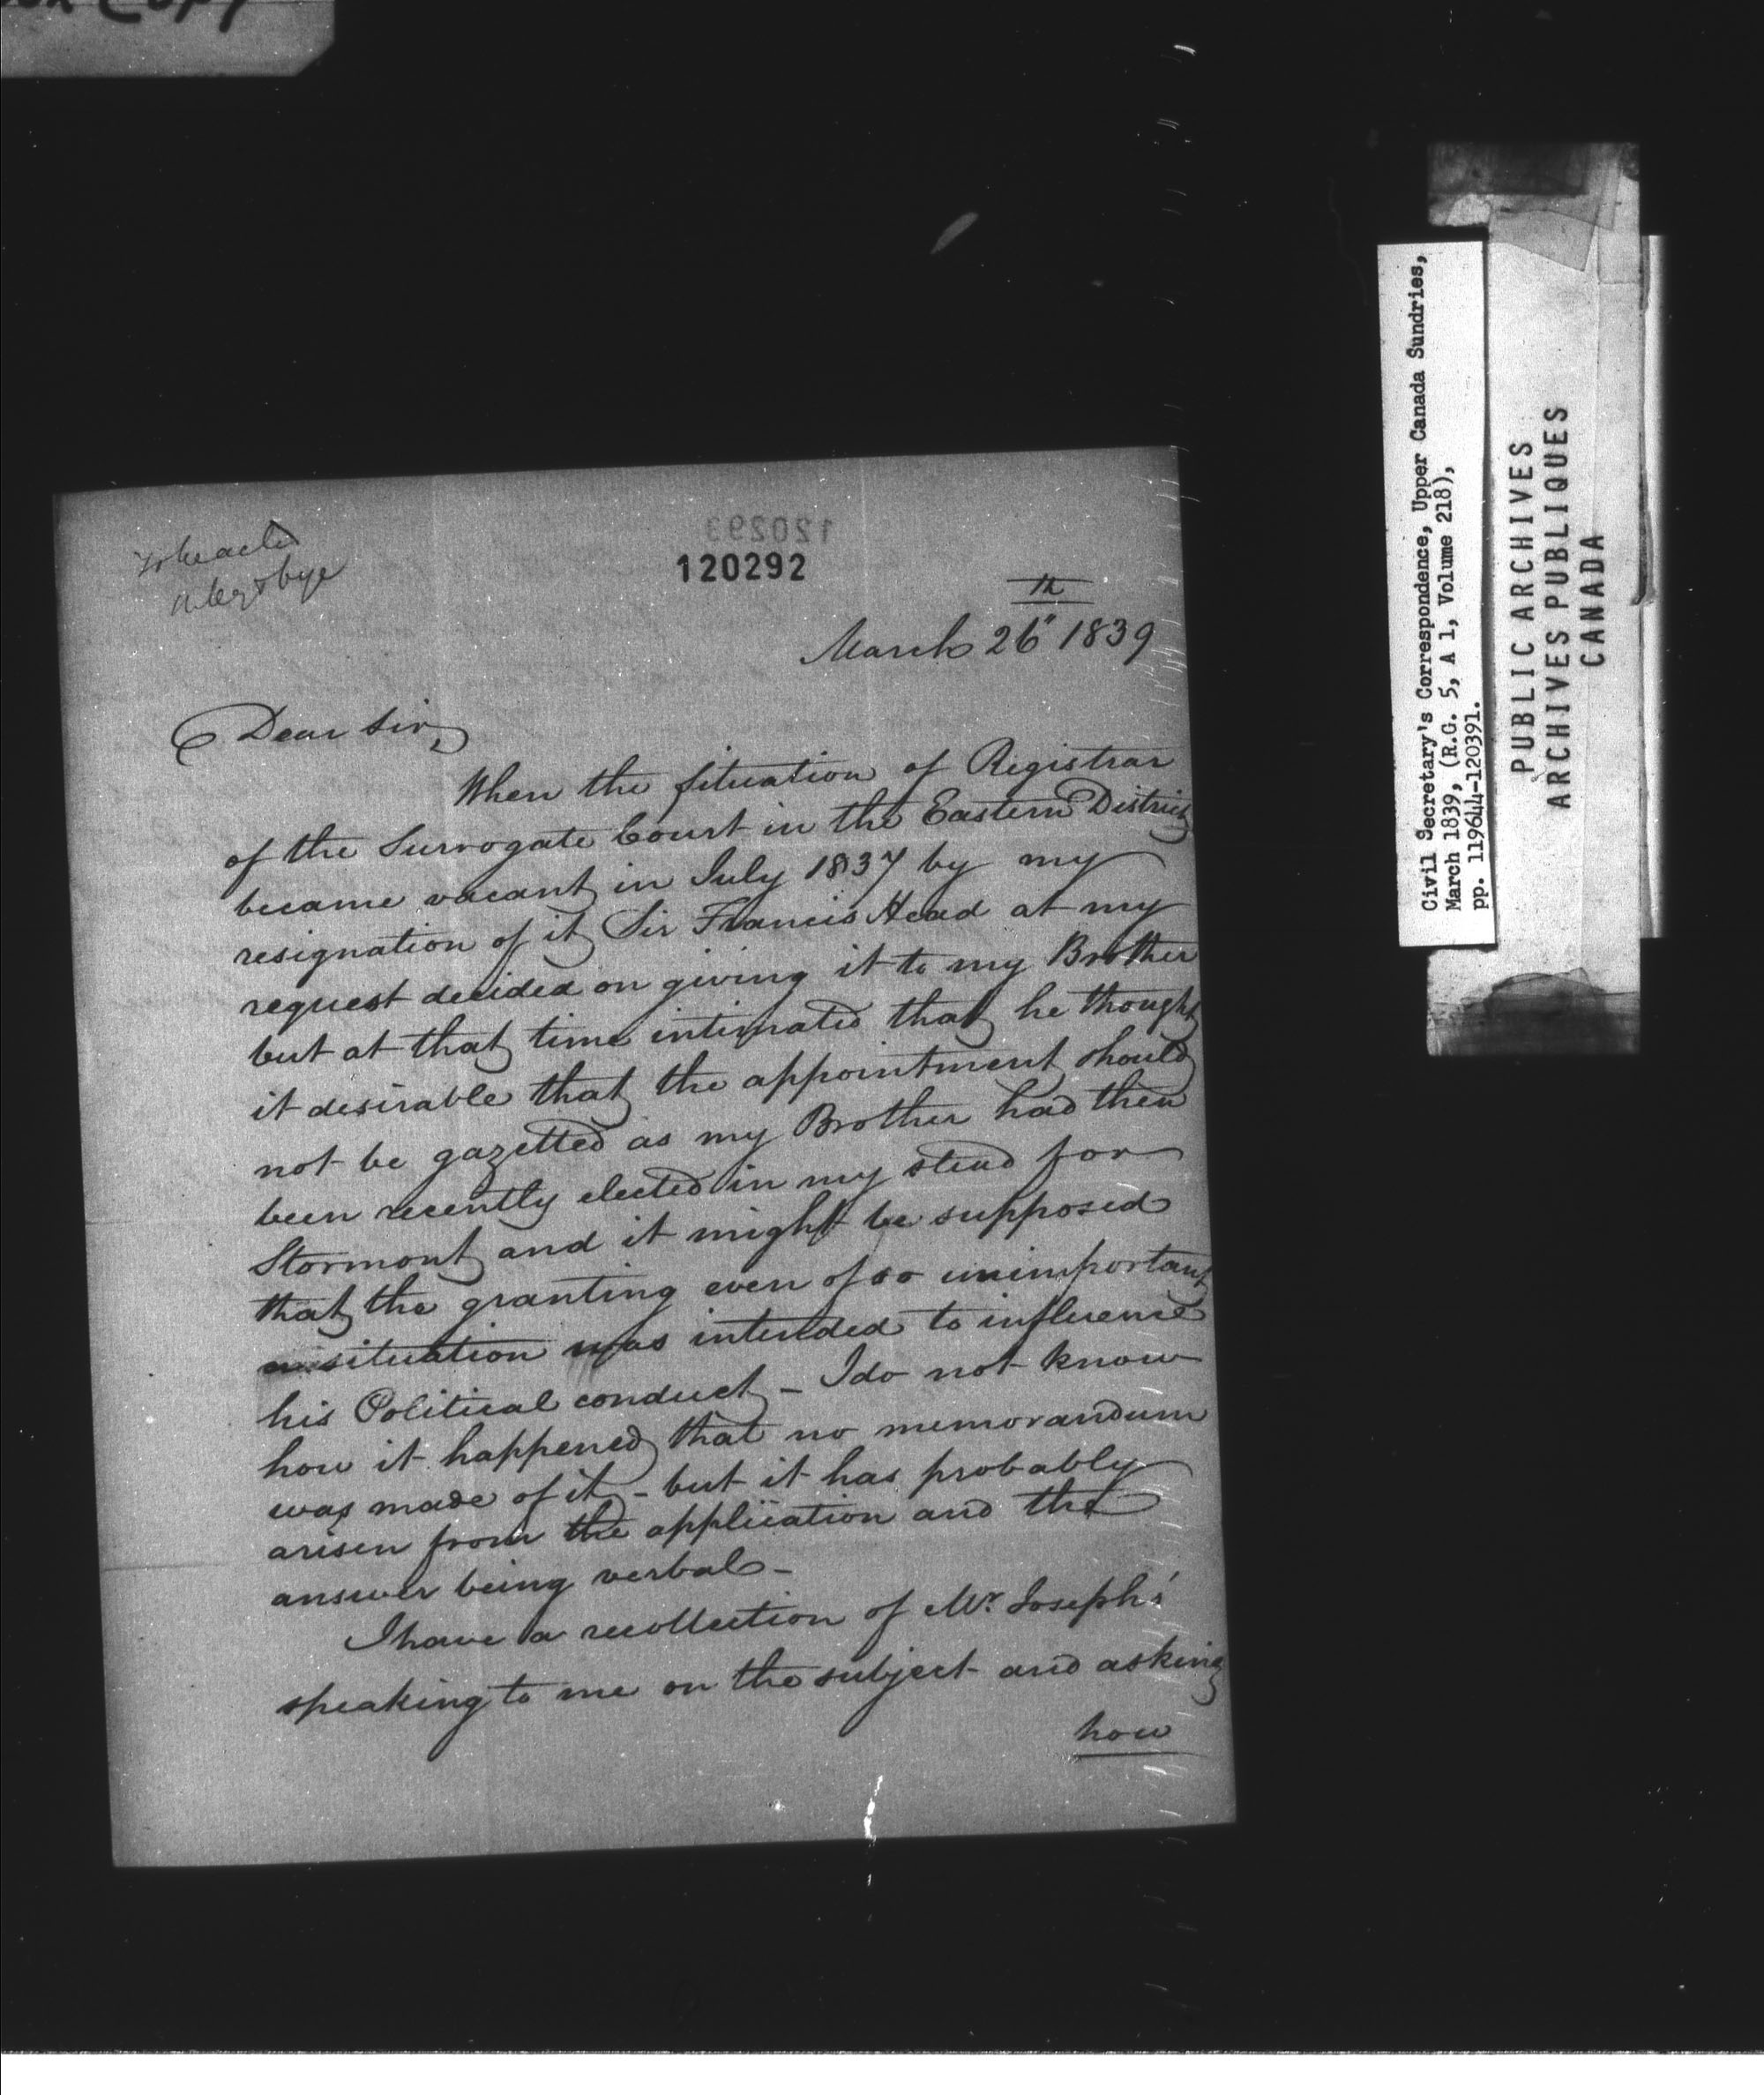 Copy
120293
120292
th
March 26" 1839
Dear Sir,
When the situation of Registrar
of the Surrogate Court in the Eastern District
became vacant in July 1837 by my
resignation of it Sir Francis Head at my
request decided on giving it to my Brother
but at that time intimated that he thought
it desirable that the appointment should
not be gazetted as my Brother had then
been recently elected in my stead for
Stormont and it might be supposed
that the granting even of so unimportant
situation was intended to influence
his Political conduct - I do not know
how it happened that no memorandum
was made of it - but it has probably
arisen from the application and the
answer being verbal -
I have a recollection of Mr. Joseph's
speaking to me on the subject and asking
how
Civil Secretary's Correspondence, Upper Canada Sundries,
March 1839, (R.G. 5, A 1, Volume 218),
pp. 119644-120391.
PUBLIC ARCHIVES
ARCHIVES PUBLIQUES
CANADA